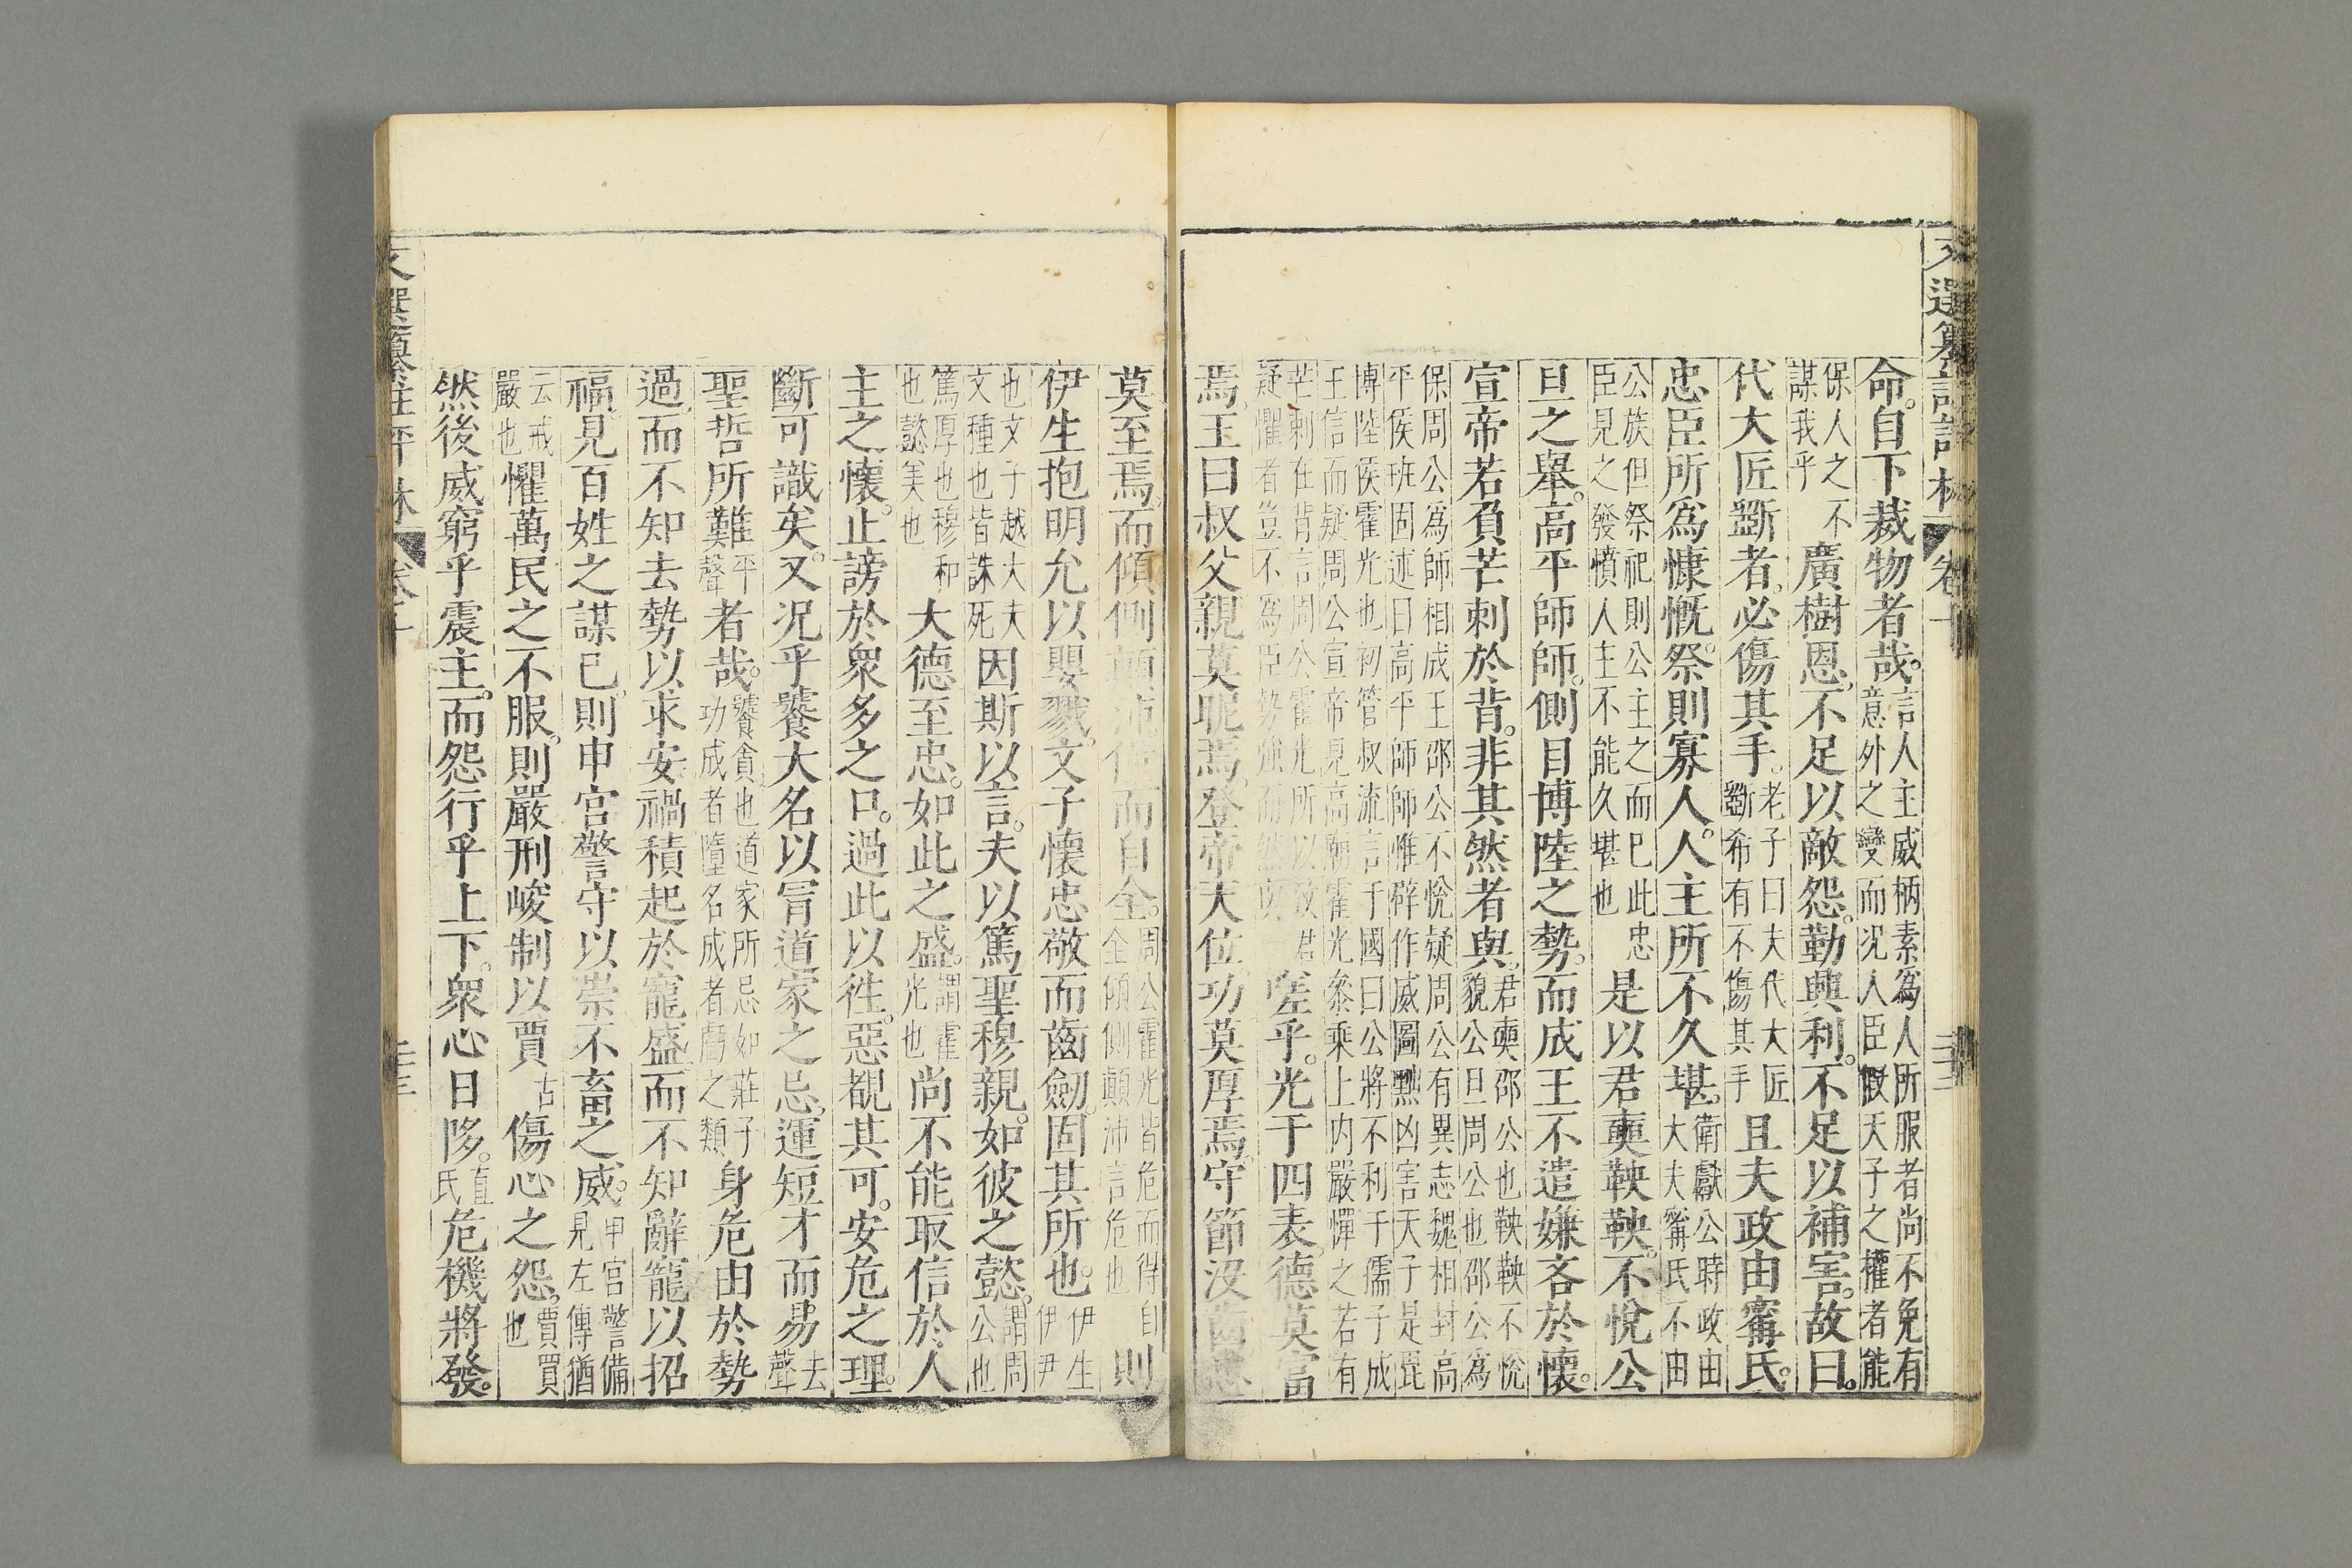 文選纂註評林 卷十 二十二
命。自下裁物者哉。言人主威柄素為人所服者尚不免有意外之變而况人臣假天子之權者能
保人之不謀我乎廣樹恩。不足以敵怨。勤興利。不足以補害。故曰。
代大匠斲者。必傷其手。老子曰夫代大匠斲希有不傷其手且夫政由甯氏。
忠臣所爲慷慨。祭則寡人。人主所不久堪。衛獻公時政由大夫甯氏不由
公族但祭祀則公主之而已此忠臣見之發憤人主不能久堪也是以君奭鞅鞅。不悅公
旦之舉。高平師師。側目博陸之勢。而成王不遣嫌吝於懷。
宣帝若負芒刺於背。非其然者與。君奭邵公也鞅鞅不悅貌公旦周公也邵公為
保周公為師相成王邵公不悅疑周公有異志魏相封高平侯班固述曰高平師師惟辟作威圖黜凶害天子是毘
博陸侯霍光也初管叔流言于國曰公將不利于孺子成王信而疑周公宣帝見高廟霍光參乘上内嚴憚之若有
芒刺在背言周公霍光所以致君疑懼者豈不為臣勢強而然與嗟乎。光于四表。德莫富
焉。王曰叔父親莫昵焉。登帝天位功莫厚焉。守節沒齒忠
莫至焉。而傾側顛沛僅而自全。周公霍光皆危而得自全傾側顛沛言危也則
伊生抱明允以嬰戮。文子懷忠敬而齒劒。固其所也。伊生伊尹
也文子越大夫文種也皆誅死因斯以言。夫以篤聖穆親。如彼之懿。謂周公也
篤厚也穆和也懿美也大德至忠。如此之盛。謂霍光也尚不能取信於人
主之懷。止謗於衆多之口。過此以徃。惡覩其可。安危之理。
斷可識矣。又况乎饕大名以冐道家之忌。運短才而易去聲
聖哲所難平聲者哉。饕貪也道家所忌如莊子功成者隳名成者虧之類身危由於勢
過。而不知去勢以求安。禍積起於寵盛。而不知辭寵以招
福。見百姓之謀已。則申宫警守。以崇不畜之威。申宫警備見左傳猶
云戒嚴也懼萬民之不服。則嚴刑峻制。以賈古傷心之怨。賈買也
然後威窮乎震主。而怨行乎上下。衆心日陊。直氏危機將發。
文選纂註評林 卷十 二十三